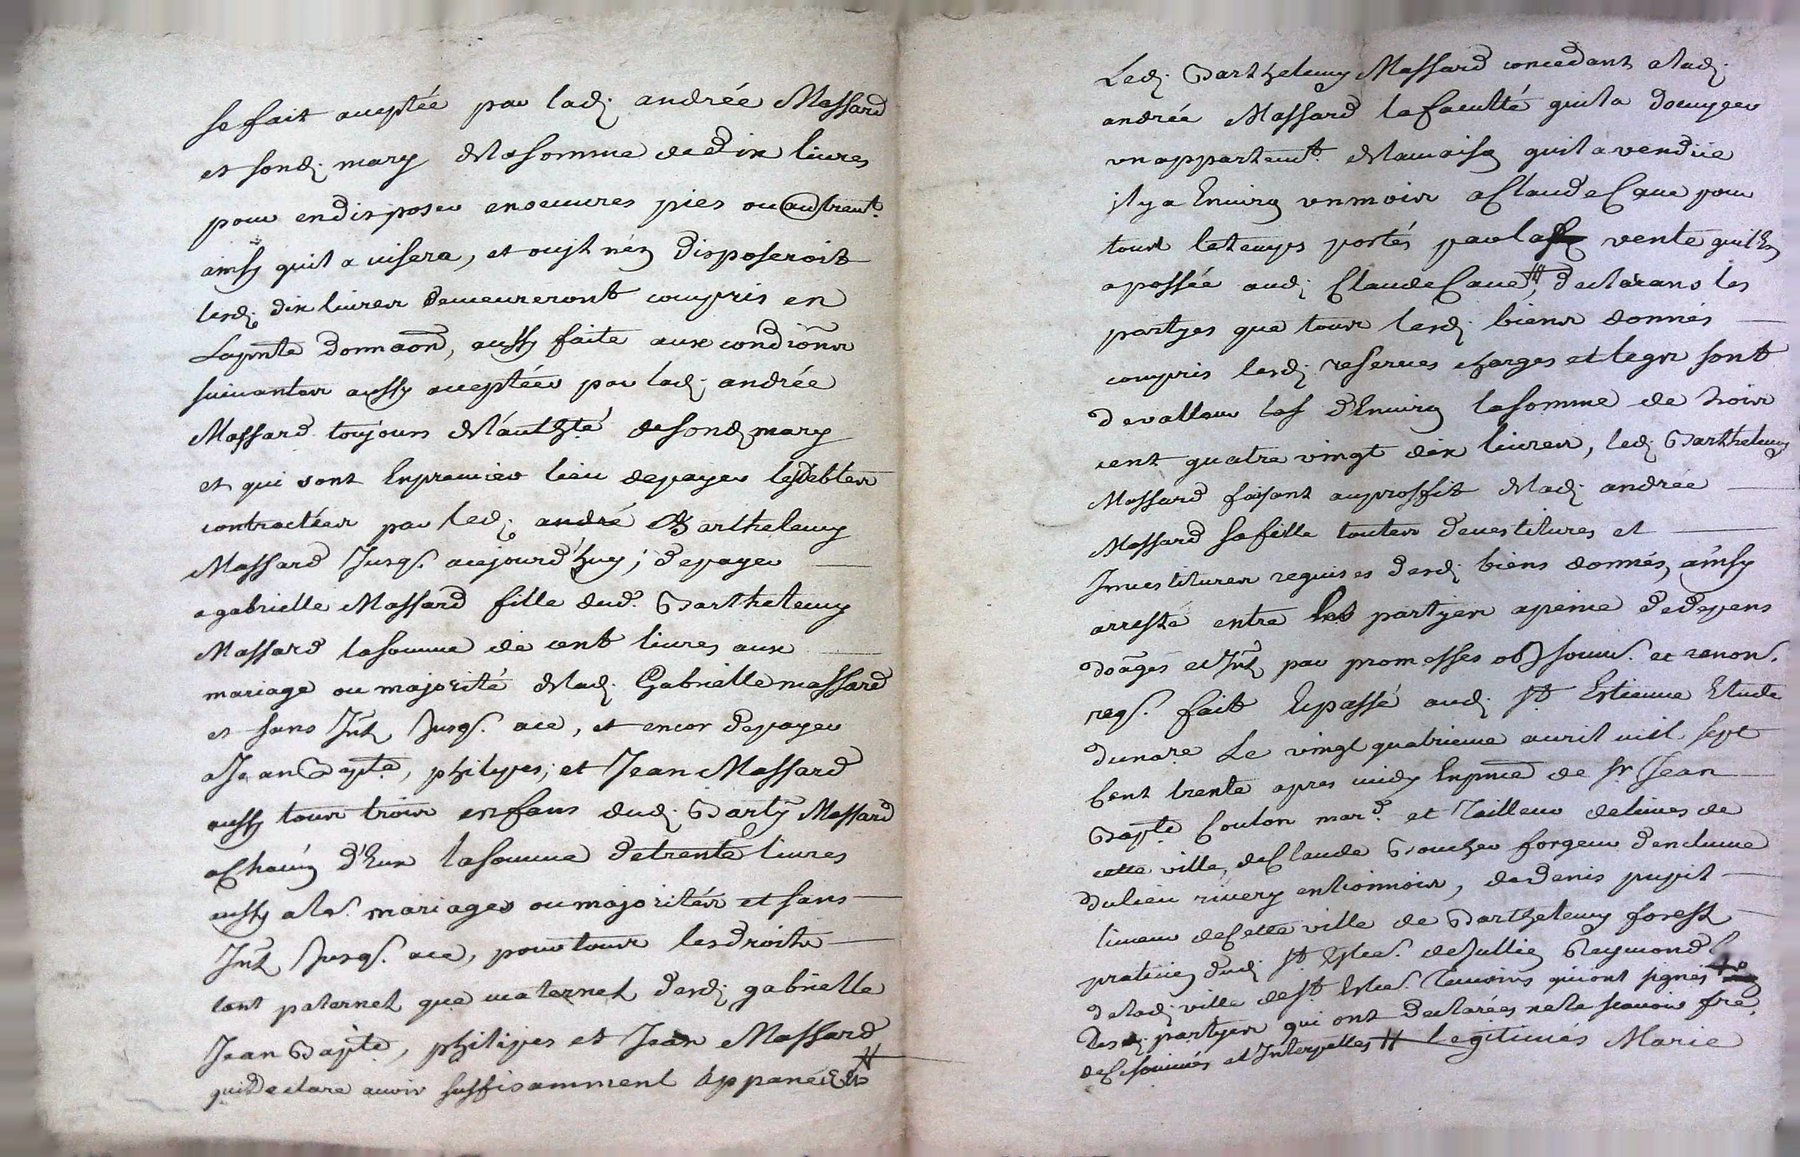 se fait acceptée par lad. andrée Massard
et sond. mary de la somme de dix livres
pour en disposer en oeuvres pies ou autremt.
ainsy quil avisera, et ou jl nen disposeroit
lesd. dix livres demeureront compris en
La pnte donnaon, aussy faite aux condiōns
suivantes aussy acceptées par lad. andrée
Massard toujours de l'authté de sond. mary
et qui sont En premier lieu de payer les debtes
contractées par led. andré Barthelemy
Massard Jusqs. aujourd'huy, de payer
a gabrielle Massard fille dud. Barthelemy
Massard la somme de cent livres aux
mariage ou majorité de lad. Gabrielle massard
et sans Jnt Jusqs. ace, et encor de payer
a Jean Bapte, philipes, et Jean Massard
aussy tous trois enfans dud. Barthy Massard
a Chacun d'Eux la somme de trente livres
aussy a lrs. mariages ou majorités et sans
Jnt Jusqs. ace, pour tous les droits
tant paternel que maternel desd. gabrielle
Jean Bapte, philipes et Jean Massard #
quil declare avoir suffisamment appanés Et
Led. Barthelemy Massard concedant a lad.
andrée Massard la faculté quil a docuper
un appartemt. de la maison quil a vendüe
il y a Environ un mois a Claude Cave pour
tout le temps portés par la vente quil En
a passée aud. Claude Cave, ## declarans les
partyes que tous lesd. biens donnés
compris lesd. reserves charges et legs sont
de valleur les d'Environ la somme de trois
cent quatre vingt dix livres, led. Barthelemy
Massard faisant au proffit de lad. andrée
Massard sa fille toutes devestitures et
Jnvestitures requises desd. biens donnés, ainsy
arresté entre les partyes a peine de depens
doāges et Jnt par promesses obon soumis. et renons.
reqs. fait Et passé aud. St Estienne Etude
du nore Le vingt quatrieme avril mil sept
Cent trente apres midy En pnce de Sr Jean
Bapte Coulon mard. et Tailleur de limes de
cette ville, de Claude forgeur d'enclume
du lieu rivery en lionnois, de denis pupil
limeur de Cette ville de Barthelemy forest
praticien dud. St Estne. de Jullien Reymond
de lad. ville de St Estne. Temoins qui ont signés
les d. partyes qui ont declarées ne le scavoir fre.
de Ce sommés et Interpellés # Legitimés Marie